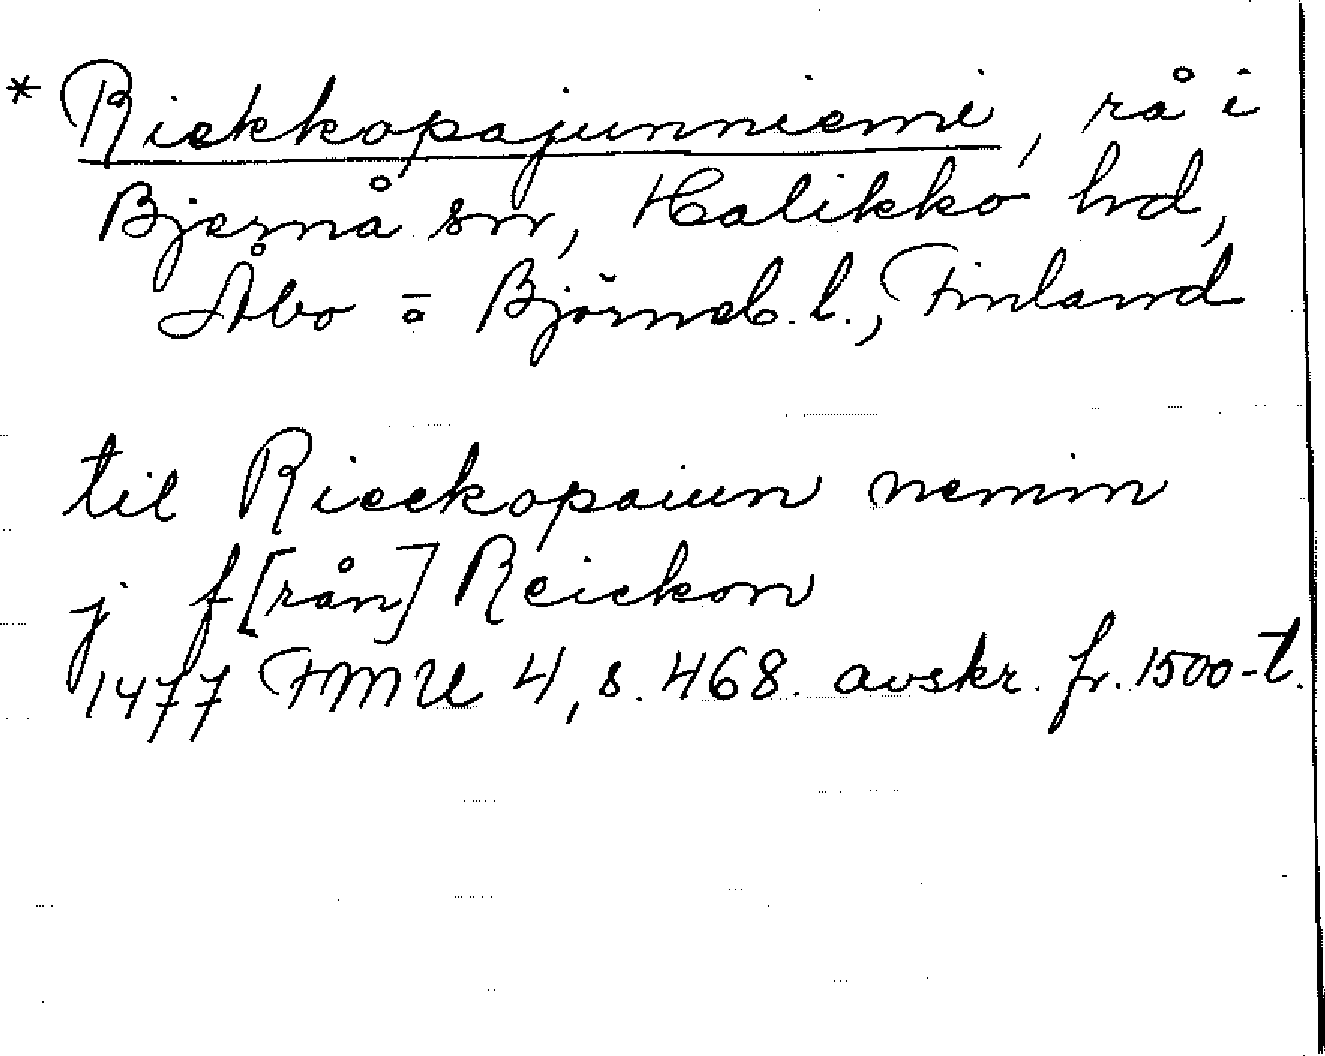 * Riekkopajunniemi, rå i
Bjärnå sn, Halikko hd,
Åbo = o Björneb. l., Finland
til Rieckopaiun nemin
j f[rån] Reickon
1477 FMU 4, s. 468. avskr. fr. 1500-t.